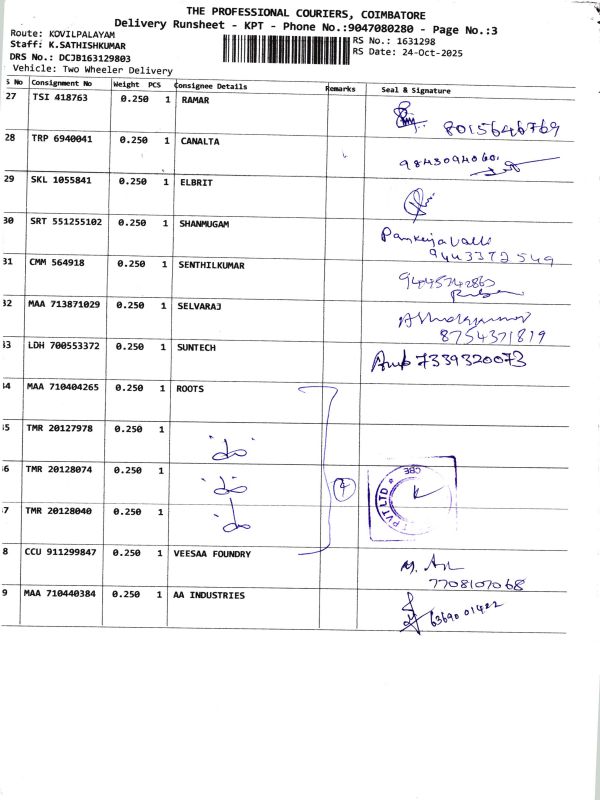 THE PROFESSIONAL COURIERS, COIMBATORE
Delivery Runsheet - KPT - Phone No.:9047080280 - Page No.:3
Route: KOVILPALAYAM
Staff: K.SATHISHKUMAR
DRS No.: DCJB163129803
Vehicle: Two Wheeler Delivery
RS No.: 1631298
RS Date: 24-Oct-2025
S No Consignment No Weight PCS Consignee Details Remarks Seal & Signature
27 TSI 418763 0.250 1 RAMAR 8015646769
28 TRP 6940041 0.250 1 CANALTA 9843094060
29 SKL 1055841 0.250 1 ELBRIT
30 SRT 551255102 0.250 1 SHANMUGAM
9443372549
31 CMM 564918 0.250 1 SENTHILKUMAR
32 MAA 713871029 0.250 1 SELVARAJ
8754371819
33 LDH 700553372 0.250 1 SUNTECH 7339320073
34 MAA 710404265 0.250 1 ROOTS
35 TMR 20127978 0.250 1 do
36 TMR 20128074 0.250 1 do
4
CBE
PVT LTD
37 TMR 20128040 0.250 1 do
8 CCU 911299847 0.250 1 VEESAA FOUNDRY
7708107068
9 MAA 710440384 0.250 1 AA INDUSTRIES 6369001422